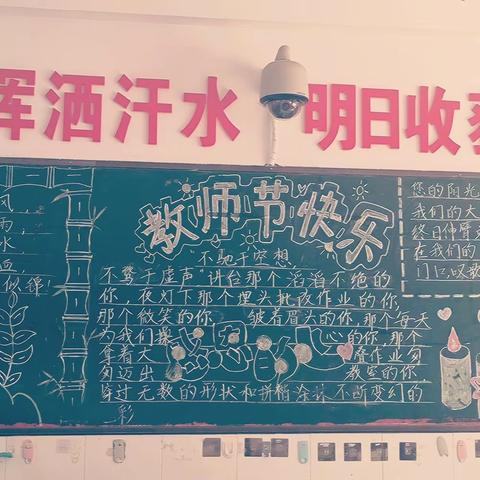 挥洒汗水 明日收获
教师节快乐
风，
雨，
水
血，
似锦！
"不驰于空想，
不骛于虚声"讲台那个滔滔不绝的
你，夜灯下那个埋头批改作业的你，
那个微笑的你 皱着眉头的你，那个每天
为我们操 心的你，那个
拿着大 叠作业匆
匆迈出 教室的你
穿过无数的形状和拼稍涂抹不断变幻的
彩
您的阳光
我们的大
终日伸臂
在我们的
门口，叹